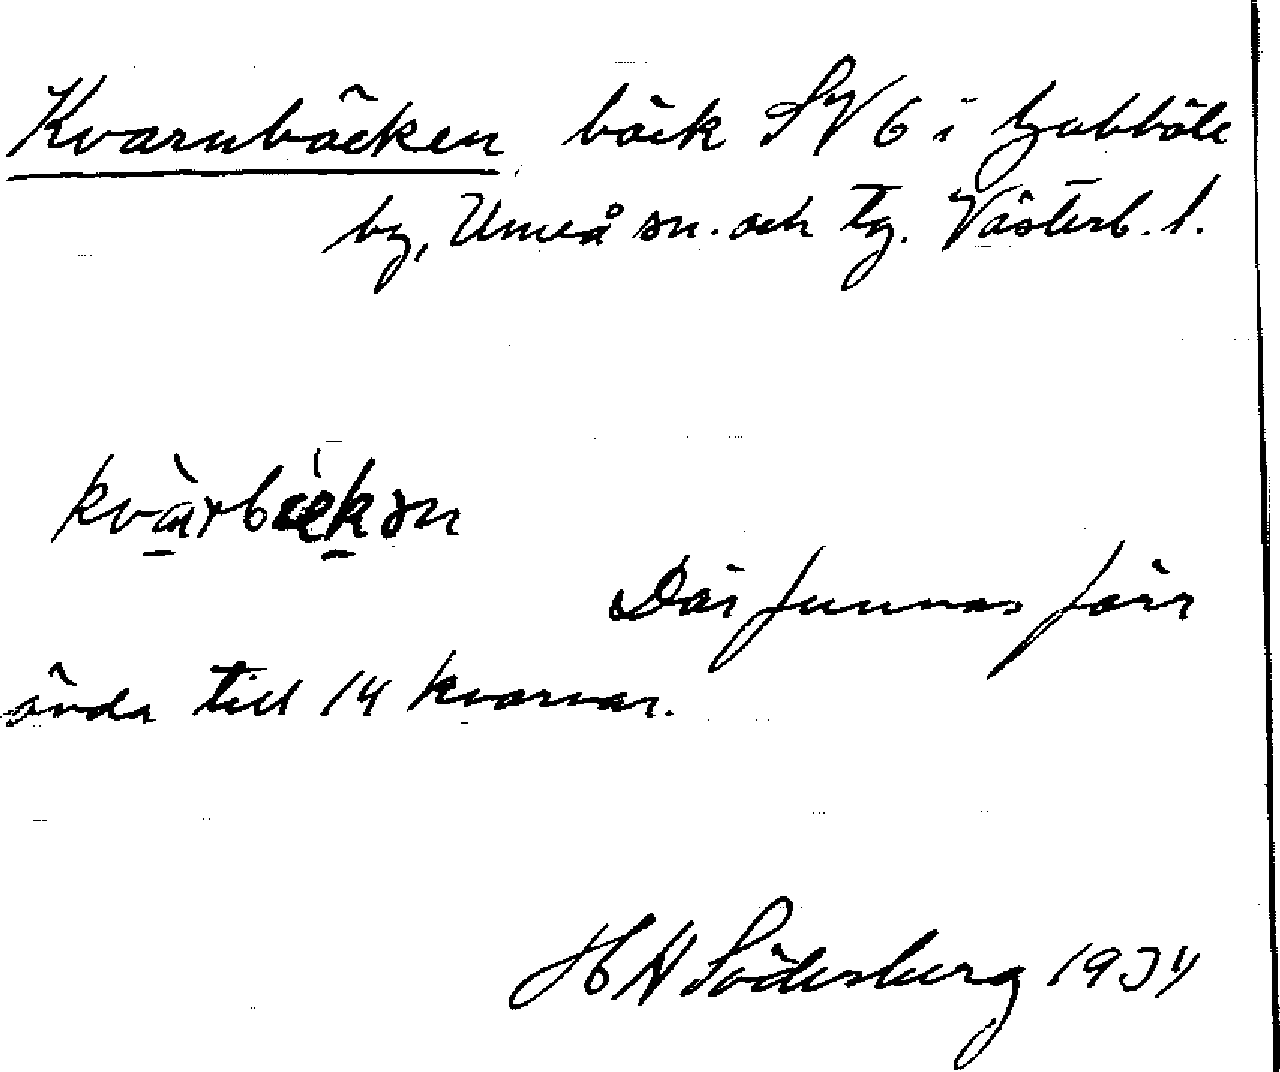 Kvarnbäcken bäck SV 6 i Gubböle
by, Umeå sn. och tg. Västerb. l.
kvàrbækən
Där funnos förr
ända till 14 kvarnar.
H Söderberg 1934